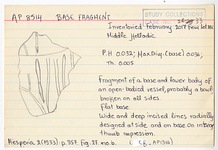 AP 8514 BASE FRAGMENT
STUDY COLLECTION
Inventoried February 2018 from lot
Middle Helladic
P.H 0.032; Max.Dim.(base) 0.036;
Th. 0.005
Fragment of a base and lower body of
an open-bodied vessel, probably a bowl,
broken on all sides.
Flat base
Wide and deep incised lines, radially
designed at side, and on base on
thumb impression.
Hesperia, 2 (1933) p. 357 Fig. 28